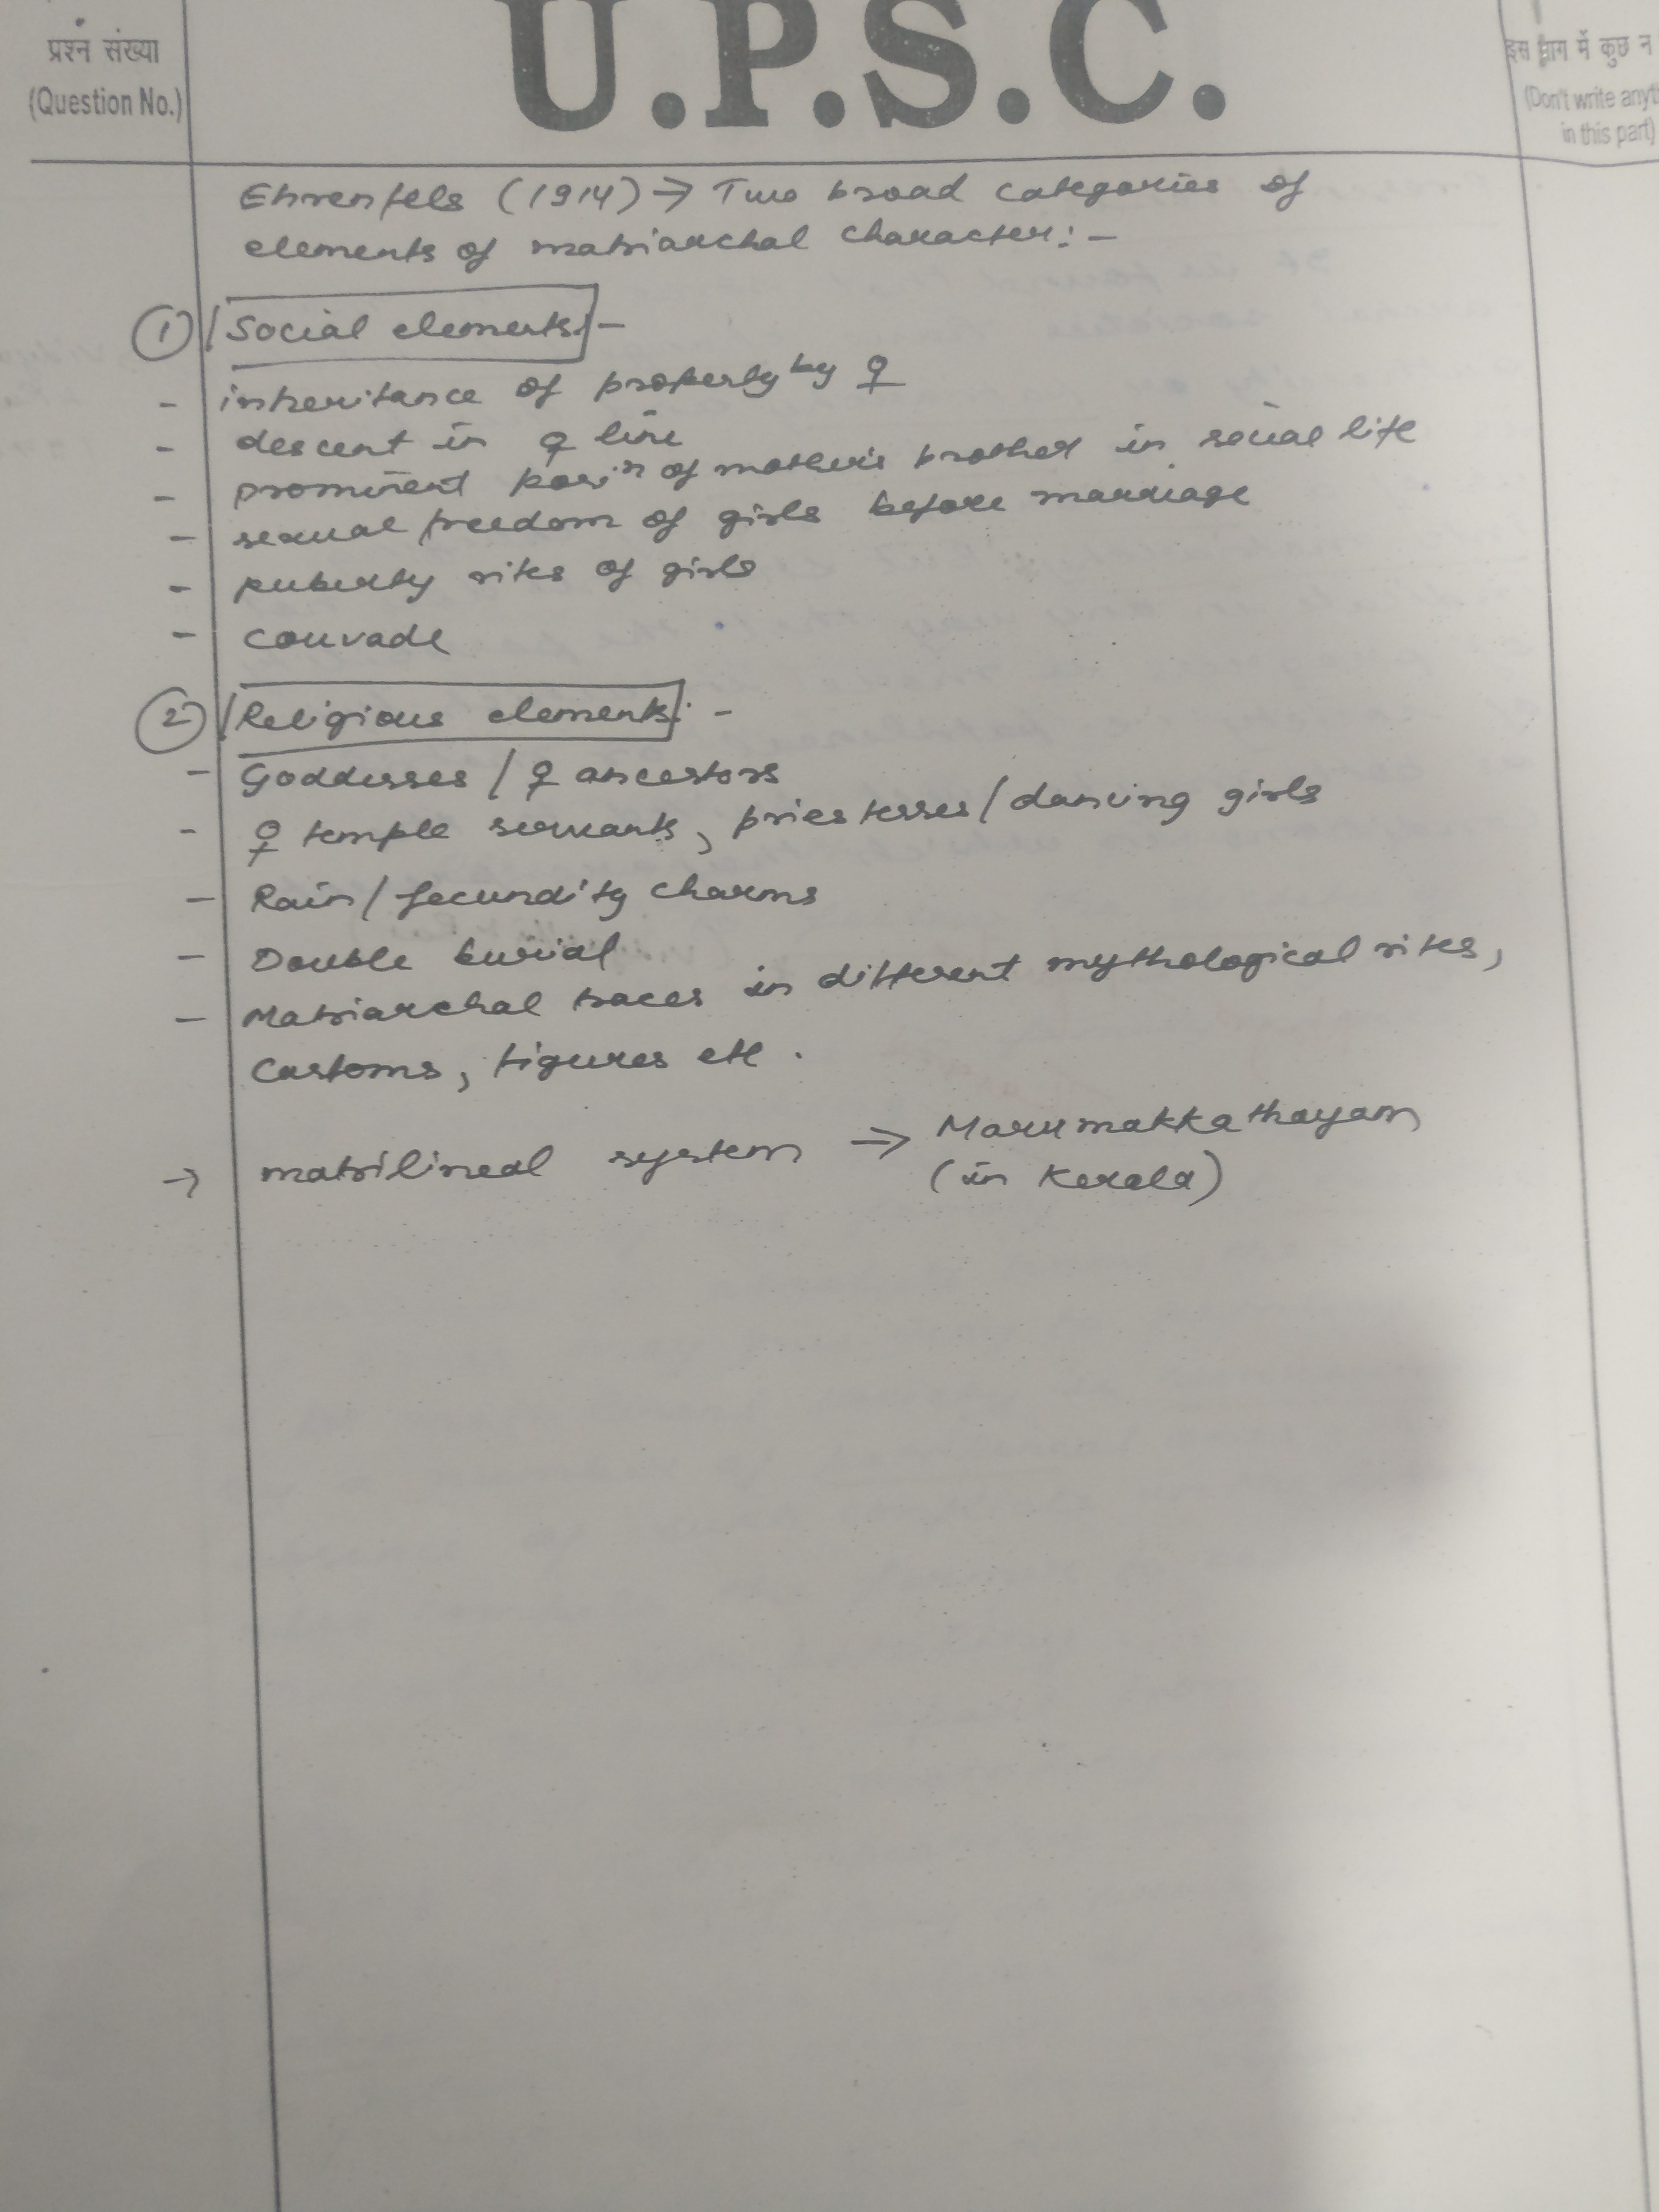 प्रश्न संख्या
(Question No.)
U.P.S.C.
इस भाग में कुछ न
(Don't write anyt
in this part)
Ehrenfels (1914) → Two broad categories of
elements of matriarchal character:-
① Social elements:-
- inheritance of property by ♀
- descent in ♀ line
- prominent posiⁿ of mother's brother in social life
- sexual freedom of girls before marriage
- puberty rites of girls
- couvade
② Religious elements: -
- Goddesses / ♀ ancestors
- ♀ temple servants, priestesses / dancing girls
- Rain / fecundity charms
- Double burial
- Matriarchal traces in different mythological rites,
customs, figures etc.
→ matrilineal system → Marumakkathayam
(in Kerala)